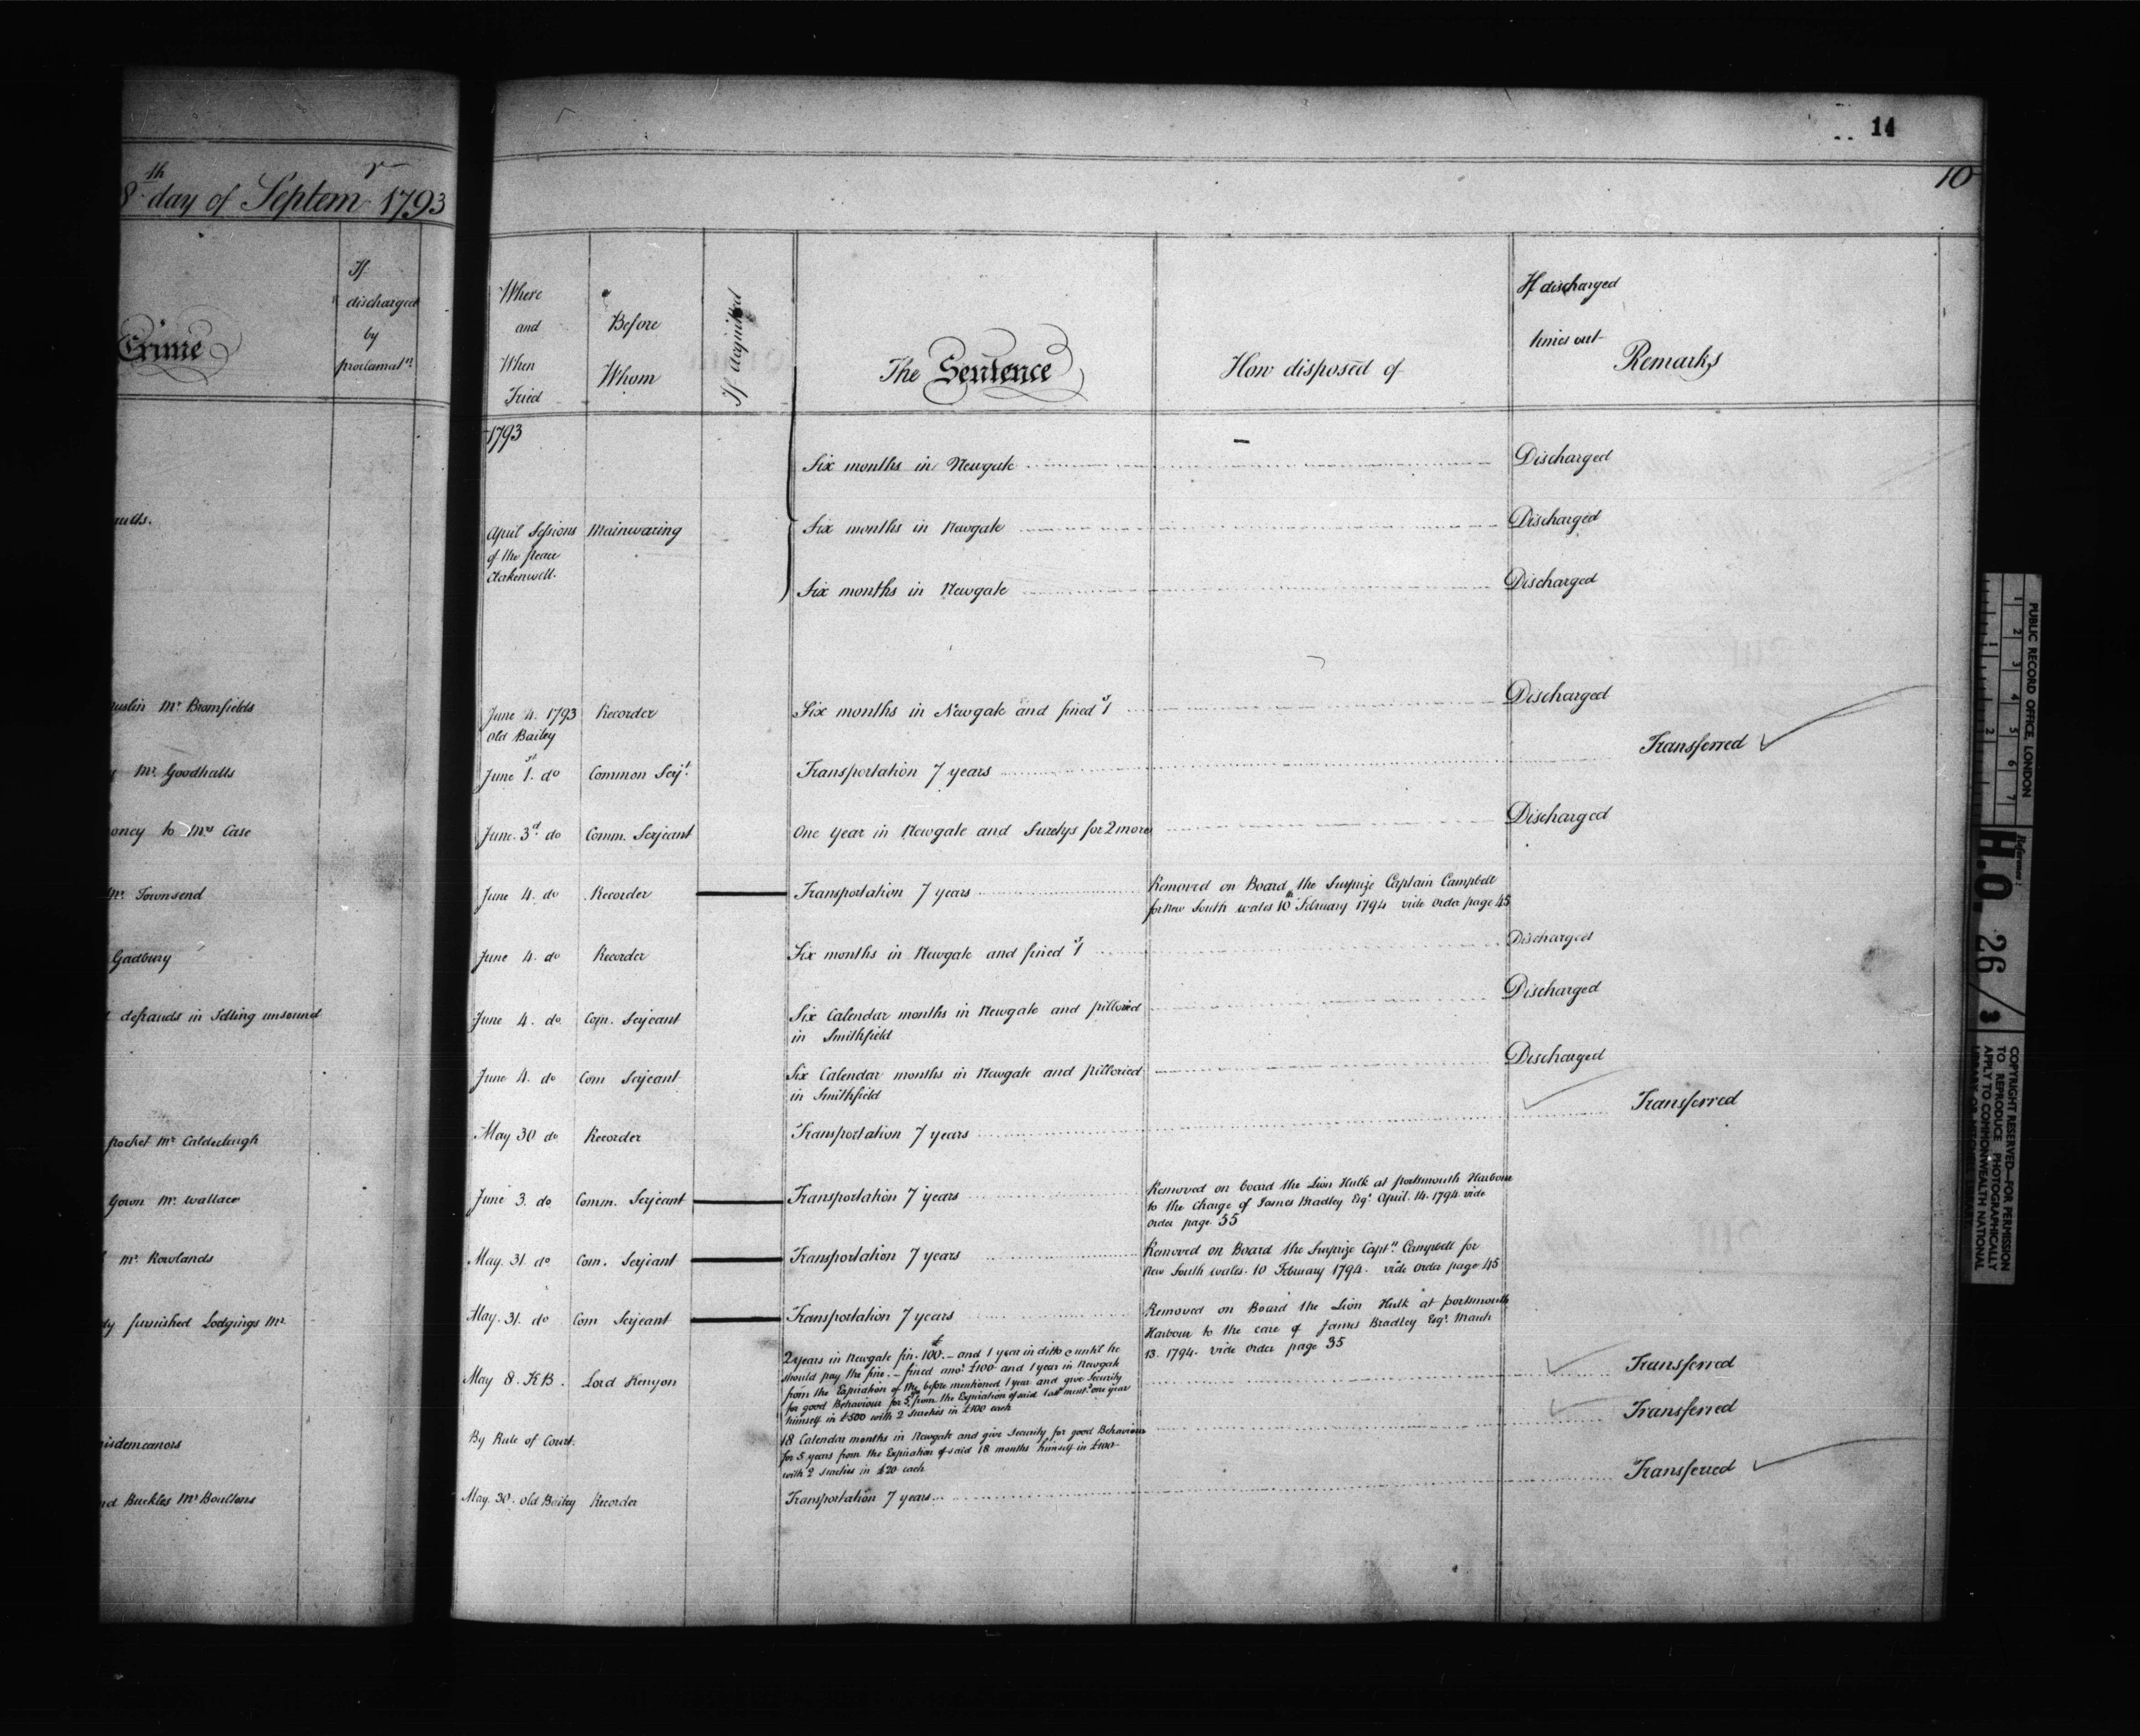 14
10
8th day of Septemr 1793
Crime
If
discharged
by
proclamatn
Where
and
When
Tried
Before
Whom
If Acquitted
The Sentence
How disposed of
If discharged
times out
Remarks
1793
Six months in Newgate
Discharged
April Sessions
of the peace
Clerkenwell.
Mainwaring
Six months in Newgate
Discharged
Six months in Newgate
Discharged
Mr Bromfields
June 4. 1793
Old Bailey
Recorder
Six months in Newgate and fined 1s
Discharged
Mr Goodhalls
June 1st. do
Common Serjt
Transportation 7 years
Transferred
to Mrs Case
June. 3d. do
Comm. Serjeant
One year in Newgate and Suretys for 2 more
Discharged
Mr Townsend
June 4. do
Recorder
Transportation 7 years
Removed on Board the Surprize Captain Campbell
for New South wales 10th February 1794 vide order page 45
Gadbury
June 4. do
Recorder
Six months in Newgate and fined 1s
Discharged
defrauds in Selling unsound
June 4. do
Com. Serjeant
Six Calendar months in Newgate and pilloried
in Smithfield
Discharged
June 4. do
Com Serjeant
Six Calendar months in Newgate and pilloried
in Smithfield
Discharged
pocket Mr Caldecleugh
May 30 do
Recorder
Transportation 7 years
Transferred
Gown Mr. Wallace
June 3. do
Comm. Serjeant
Transportation 7 years
Removed on board the Lion Hulk at portsmouth Harbour
to the charge of James Bradley Esqr. April. 14. 1794 vide
order page 55
Mr. Rowlands
May. 31. do
Com. Serjeant
Transportation 7 years
Removed on Board the Surprize Captn. Campbell for
New South wales. 10 February 1794. vide order page 45
furnished Lodgings Mr.
May. 31. do
Com Serjeant
Transportation 7 years
Removed on Board the Lion Hulk at portsmouth
Harbour to the care of James Bradley Esqr. March
13. 1794. vide order page 35
May 8. KB.
Lord Kenyon
2 years in Newgate fin. £100. – and 1 year in ditto & until he
should pay the fine. – fined anor £100 and 1 year in Newgate
from the Expiration of the before mentioned 1 year and give Security
for good Behaviour for 5 yrs from the Expiration of said last mentd one year
himself in £500 with 2 Sureties in £100 each
Transferred
misdemeanors
By Rule of Court.
18 Calendar months in Newgate and give Security for good Behaviour
for 5 years from the Expiration of said 18 months himself in £100
with 2 Sureties in £20 each
Transferred
Buckles Mr Boultons
May. 30. old Bailey
Recorder
Transportation 7 years
Transferred
PUBLIC RECORD OFFICE, LONDON
1 2 3 4 5 6 7
1 2
Reference:
H.O. 26/3
COPYRIGHT RESERVED—FOR PERMISSION
TO REPRODUCE PHOTOGRAPHICALLY
APPLY TO COMMONWEALTH NATIONAL